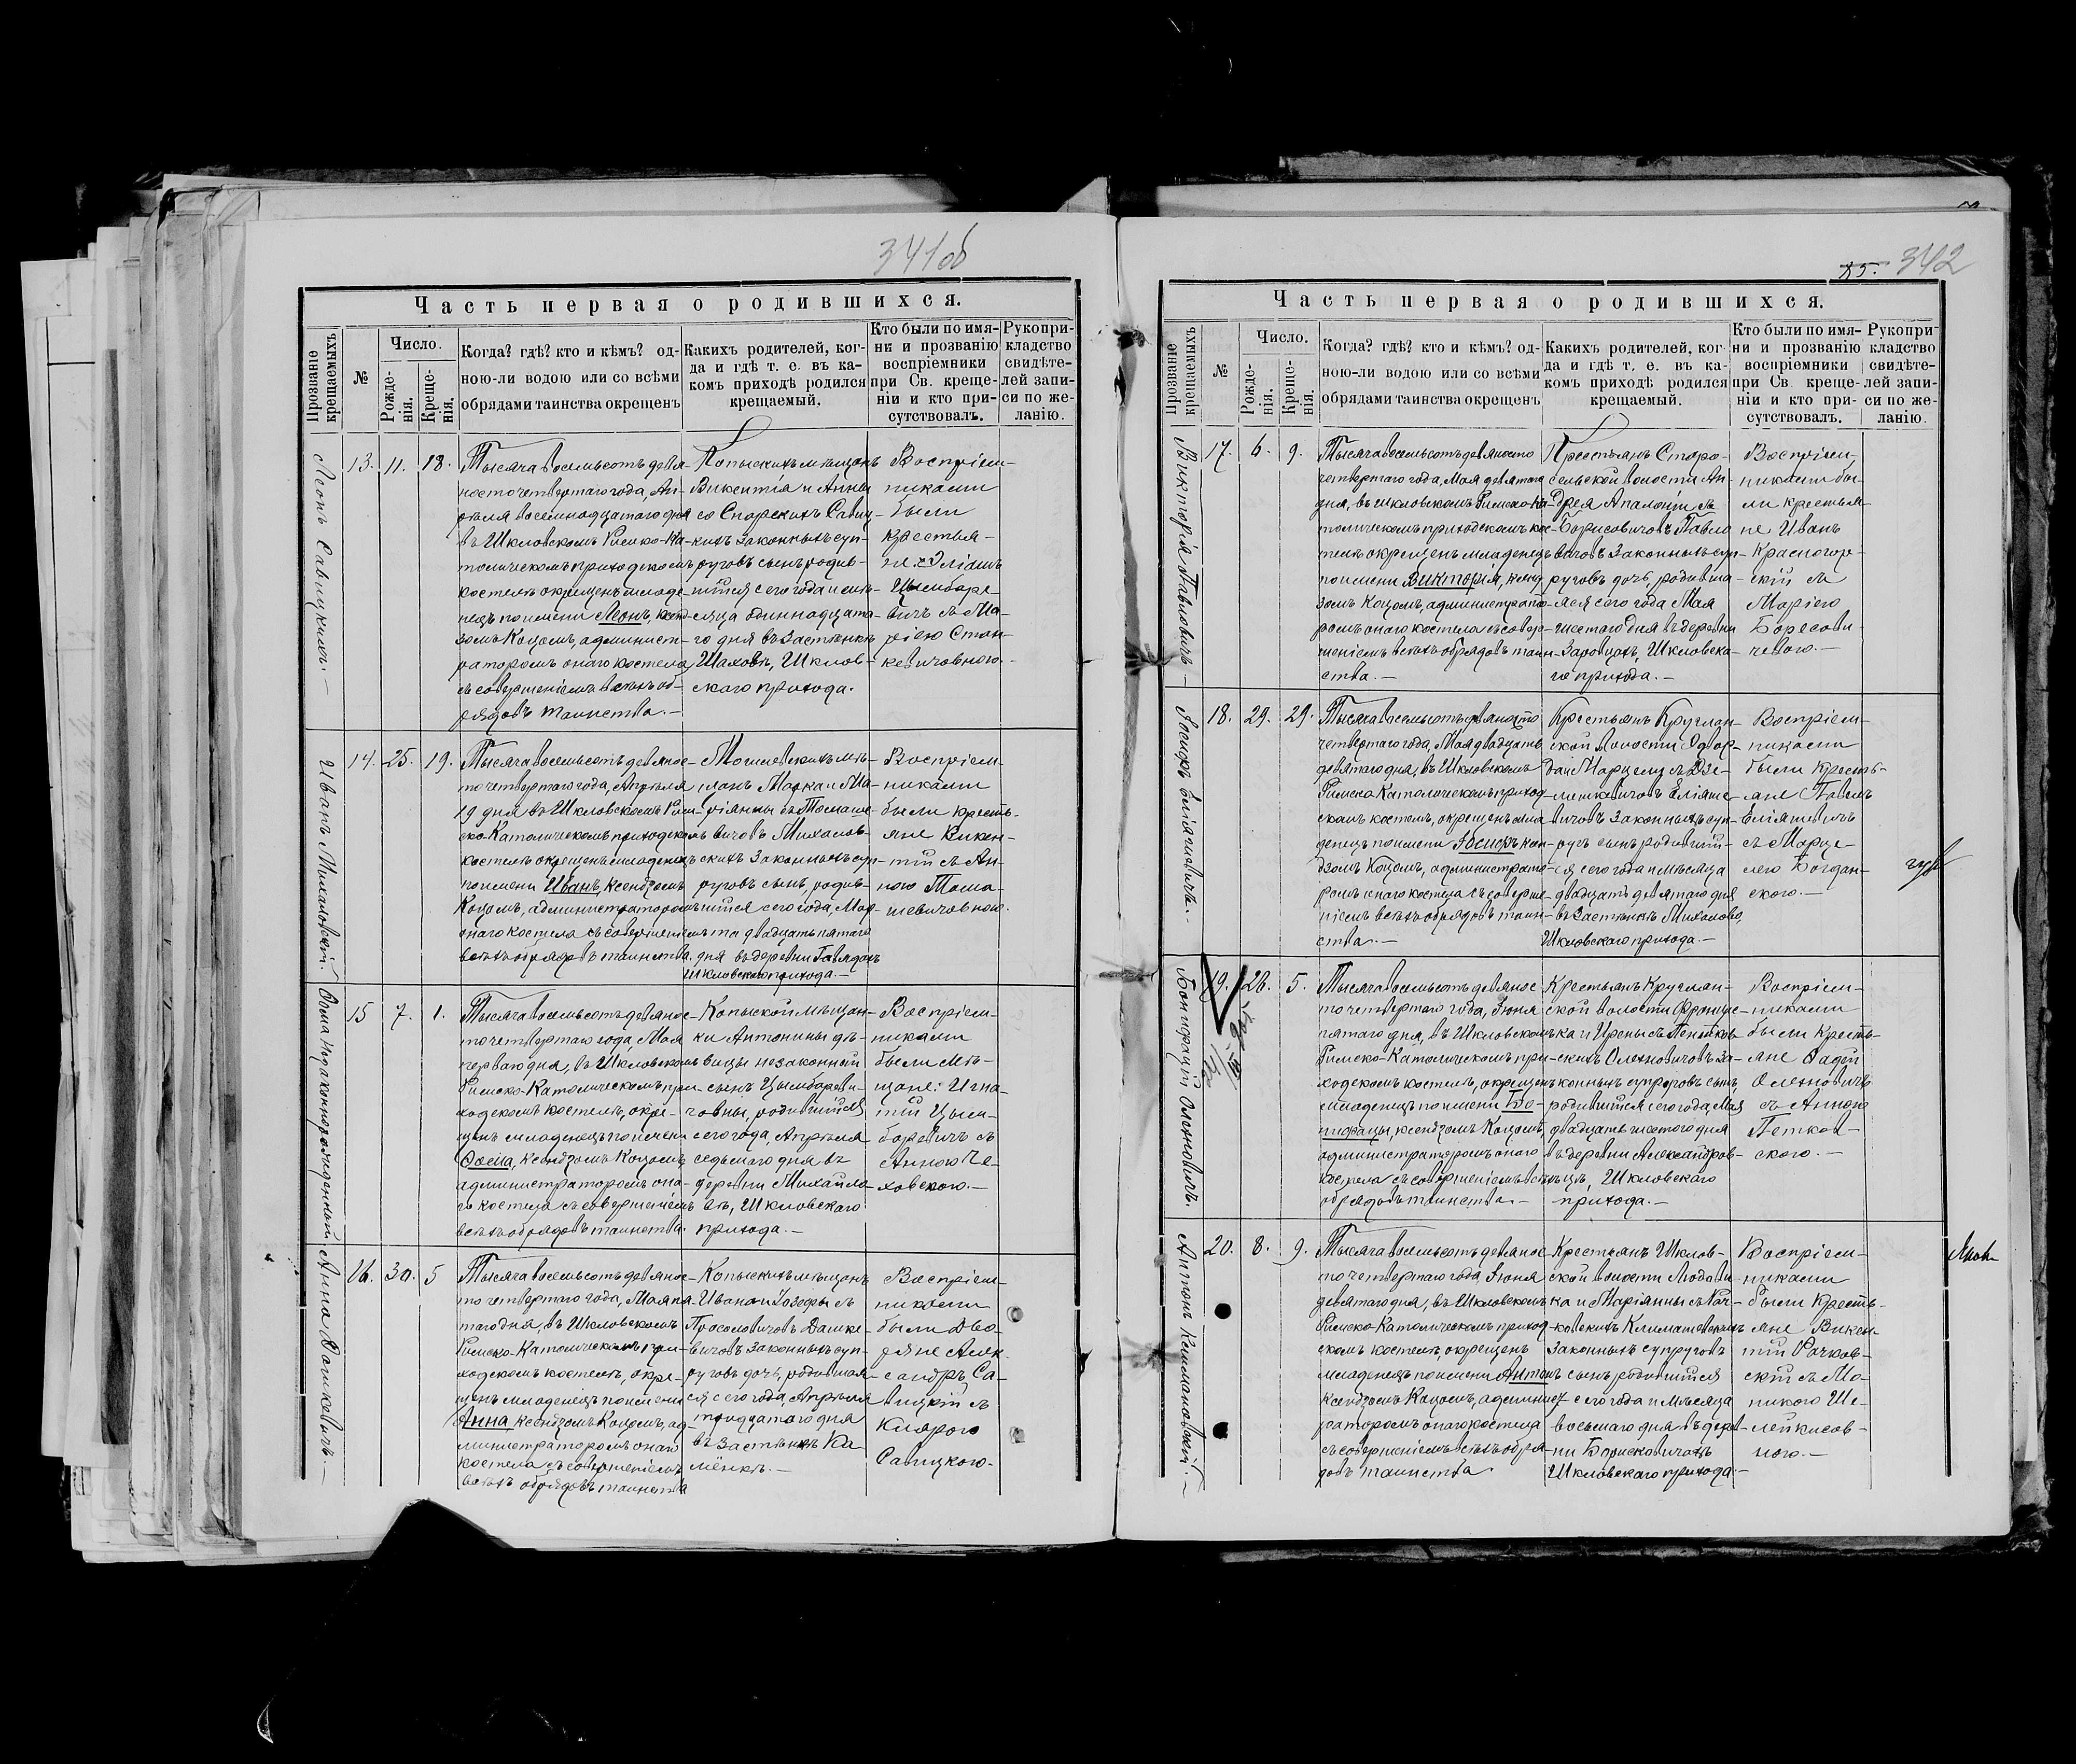 341об
Часть первая о родившихся.
Прозваніе крещаемыхъ
№
Число.
Рожде-
нія.
Креще-
нія.
Когда? гдѣ? кто и кѣмъ? од-
ною-ли водою или со всѣми
обрядами таинства окрещенъ
Какихъ родителей, ког-
да и гдѣ т. е. въ ка-
комъ приходѣ родился
крещаемый.
Кто были по имя-
ни и прозванію
воспріемники
при Св. креще-
ніи и кто при-
сутствовалъ.
Рукопри-
кладство
свидѣте-
лей запи-
си по же-
ланію.
Леонъ Савицкихъ.
13.
11.
18.
Тысяча восемьсотъ девя-
носто четвертаго года, Ап-
рѣля восемнадцатаго дня
въ Шкловскомъ Римско-Ка-
толическомъ приходскомъ
костелѣ окрещенъ младе-
нецъ по имени Леонъ, ксен-
зомъ Коцомъ, админист-
раторомъ онаго костела
съ совершеніемъ всѣхъ об-
рядовъ таинства.
Копыскихъ мѣщанъ
Викентія и Анны
со Спорскихъ Савиц-
кихъ законныхъ суп-
руговъ сынъ, родив-
шійся сего года и мѣ-
сяца одиннадцата-
го дня въ застѣнкѣ
Шаховѣ, Шклов-
скаго прихода.
Воспріем-
никами
были
крестья-
не: Эліашъ
Цымборе-
вичъ съ Ма-
ріею Стан-
кевичовною.
Иванъ Михаловскій.
14.
25.
19.
Тысяча восемьсотъ девянос-
то четвертаго года, Апрѣля
19 дня въ Шкловскомъ Рим-
ско-Католическомъ приходскомъ
костелѣ окрещенъ младенецъ
по имени Иванъ, ксендзомъ
Коцомъ, администраторомъ
онаго костела съ совершеніемъ
всѣхъ обрядовъ таинства.
Могилевскихъ мѣ-
щанъ Марка и Ма-
ріянны съ Томаше-
вичовъ Михалов-
скихъ законныхъ суп-
руговъ сынъ, родив-
шійся сего года, Мар-
та двадцать пятаго
дня въ деревни
Шкловскаго прихода.
Воспріем-
никами
были кресть-
яне Викен-
тій съ Ан-
ною Тома-
шевичовною.
Ѳома Незаконнорожденный
15
7.
1.
Тысяча восемьсотъ девянос-
то четвертаго года, Мая
перваго дня, въ Шкловскомъ
Римско-Католическомъ при-
ходскомъ костелѣ, окре-
щенъ младенецъ по имени
Ѳома, ксендзомъ Коцомъ,
администраторомъ она-
го костела съ совершеніемъ
всѣхъ обрядовъ таинства.
Копыской мѣщан-
ки Антонины дѣ-
вицы незаконный
сынъ Цымбореви-
човны, родившійся
сего года, Апрѣля
седьмаго дня въ
деревни Михайло-
вѣ, Шкловскаго
прихода.
Воспріем-
никами
были мѣ-
щане: Игна-
тій Цым-
боревичъ съ
Анною Че-
ховскою.
Анна Дашкевичъ.
16.
30.
5
Тысяча восемьсотъ девянос-
то четвертаго года, Мая пя-
таго дня, въ Шкловскомъ
Римско-Католическомъ при-
ходскомъ костелѣ, окре-
щенъ младенецъ по имени
Анна, ксендзомъ Коцомъ, ад-
министраторомъ онаго
костела съ совершеніемъ
всѣхъ обрядовъ таинства
Копыскихъ мѣщанъ
Ивана и Іозефы съ
Просоловичовъ Дашке-
вичовъ законныхъ суп-
руговъ дочь, родившая-
ся сего года, Апрѣля
тридцатаго дня
въ застѣнкѣ Ка-
мёнкѣ.
Воспріем-
никами
были Дво-
ряне Алек-
сандръ Са-
вицкій съ
Клярою
Савицкою.
85.
342
Часть первая о родившихся.
Прозваніе крещаемыхъ
№
Число.
Рожде-
нія.
Креще-
нія.
Когда? гдѣ? кто и кѣмъ? од-
ною-ли водою или со всѣми
обрядами таинства окрещенъ
Какихъ родителей, ког-
да и гдѣ т. е. въ ка-
комъ приходѣ родился
крещаемый.
Кто были по имя-
ни и прозванію
воспріемники
при Св. креще-
ніи и кто при-
сутствовалъ.
Рукопри-
кладство
свидѣте-
лей запи-
си по же-
ланію.
Викторія Павловичъ
17.
6.
9.
Тысяча восемьсотъ девяносто
четвертаго года, Мая девятаго
дня, въ Шкловскомъ Римско-Ка-
толическомъ приходскомъ кос-
телѣ окрещенъ младенецъ
по имени Викторія, ксенд-
зомъ Коцомъ, администрато-
ромъ онаго костела съ совер-
шеніемъ всѣхъ обрядовъ таин-
ства.
Крестьянъ Старо-
сельской волости Ан-
дрея Апалоніи съ
Борисовичовъ Павло-
вичовъ законныхъ суп-
руговъ дочь, родивша-
яся сего года Мая
шестаго дня въ деревни
Зарѣцахъ, Шкловска-
го прихода.
Воспріем-
никами бы-
ли крестья-
не Иванъ
Красногор-
скій съ
Маріею
Борисови-
чевою.
Іосифъ Еліяшевичъ.
18.
29.
29.
Тысяча восемьсотъ девяносто
четвертаго года, Мая двадцать
девятаго дня, въ Шкловскомъ
Римско Католическомъ приход-
скомъ костелѣ, окрещенъ мла-
денецъ по имени Іосифъ ксен-
дзомъ Коцомъ, администрато-
ромъ онаго костела съ соверше-
ніемъ всѣхъ обрядовъ таин-
ства.
Крестьянъ Круглян-
ской волости Эдвар-
да и Марцели съ Дзе-
мешкевичовъ Еліяше-
вичовъ законныхъ суп-
руг сынъ родившій-
ся сего года и мѣсяца
двадцать девятаго дня
въ застѣнкѣ Михалово,
Шкловскаго прихода.
Воспріем-
никами
были кресть-
яне Павелъ
Еліяшевичъ
съ Марце-
лею Богдан-
скою.
Бонифацій Олехновичъ.
19.
26.
5.
Тысяча восемьсотъ девянос-
то четвертаго года, Іюня
пятаго дня, въ Шкловскомъ
Римско-Католическомъ при-
ходскомъ костелѣ, окрещенъ
младенецъ по имени Бо-
нифацы, ксендзомъ Коцомъ,
администраторомъ онаго
костела съ совершеніемъ всѣхъ
обрядовъ таинства.
Крестьянъ Круглян-
ской волости Францис-
ка и Ирены съ Петков-
скихъ Олехновичовъ за-
конныхъ супруговъ сынъ,
родившійся сего года, Мая
двадцать шестаго дня
въ деревни Александров-
цѣ, Шкловскаго
прихода.
Воспріем-
никами
были кресть-
яне Фадей
Олехновичъ
съ Анною
Петков-
скою.
Антонъ Климашевскій.
20.
8.
9.
Тысяча восемьсотъ девянос-
то четвертаго года Іюня
девятаго дня, въ Шкловскомъ
Римско-Католическомъ приход-
скомъ костелѣ, окрещенъ
младенецъ по имени Антонъ
ксендзомъ Коцомъ, админист-
раторомъ онаго костела
съ совершеніемъ всѣхъ обря-
довъ таинства.
Крестьянъ Шклов-
ской волости Людови-
ка и Маріянны съ Рач-
ковскихъ Климашевскихъ
законныхъ супруговъ
сынъ, родившійся
сего года и мѣсяца
восьмаго дня въ дерев-
ни Борисковичахъ
Шкловскаго прихода.
Воспріем-
никами
были кресть-
яне Викен-
тій Рачков-
скій съ Мо-
никою Ше-
лейкисов-
ною.